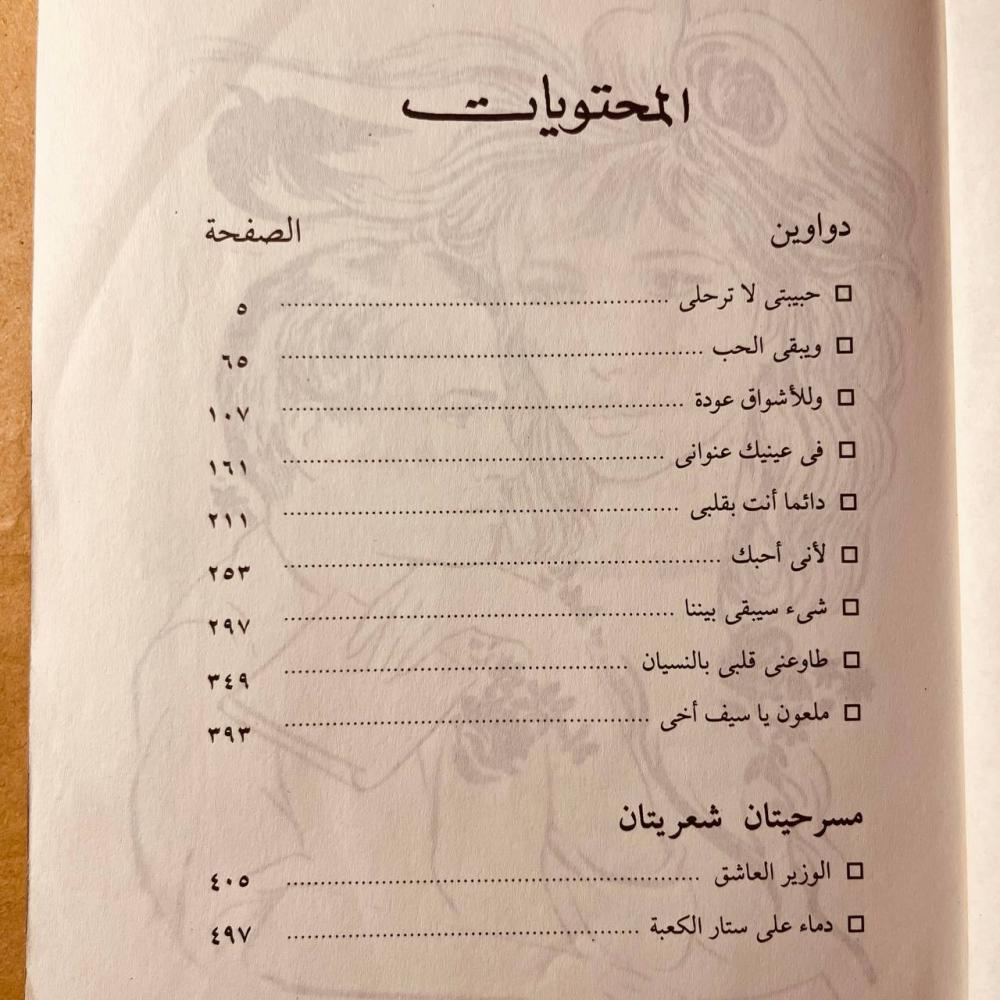 المحتويات
دواوين الصفحة
حبيبتى لا ترحلى ٥
ويبقى الحب ٦٥
وللأشواق عودة ١٠٧
فى عينيك عنوانى ١٦١
دائما أنت بقلبى ٢١١
لأنى أحبك ٢٥٣
شىء سيبقى بيننا ٢٩٧
طاوعنى قلبى بالنسيان ٣٤٩
ملعون يا سيف أخى ٣٩٣
مسرحيتان شعريتان
الوزير العاشق ٤٠٥
دماء على ستار الكعبة ٤٩٧